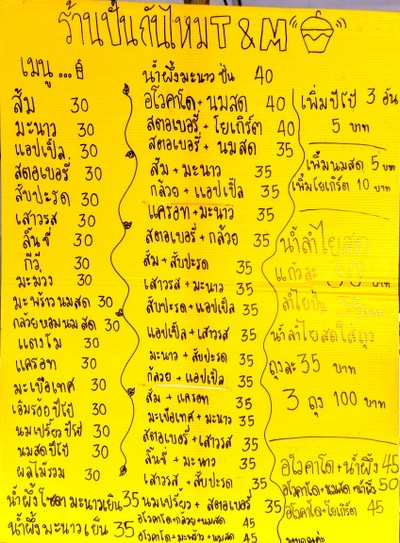 ร้านปั่นกันไหม T & M
เมนู ...
ส้ม 30
มะนาว 30
แอปเปิ้ล 30
สตอเบอรี่ 30
สับปะรด 30
เสาวรส 30
ลิ้นจี่ 30
กีวี่ 30
มะม่วง 30
มะพร้าวนมสด 30
กล้วยหอมนมสด 30
แตงโม 30
แครอท 30
มะเขือเทศ 30
เอิมร้อยปีโป้ 30
นมเปรี้ยวปีโป้ 30
นมสดปีโป้ 30
ผลไม้รวม 30
น้ำผึ้งโซดามะนาวเย็น 35
น้ำผึ้งมะนาวเย็น 35
น้ำผึ้งมะนาวปั่น 40
อโวคาโด + นมสด 40
สตอเบอรี่ + โยเกิร์ต 40
สตอเบอรี่ + นมสด 35
ส้ม + มะนาว 35
กล้วย + แอปเปิ้ล 35
แครอท + มะนาว 35
สตอเบอรี่ + กล้วย 35
ส้ม + สับปะรด 35
เสาวรส + มะนาว 35
สับปะรด + แอปเปิ้ล 35
แอปเปิ้ล + เสาวรส 35
มะนาว + สับปะรด 35
กล้วย + แอปเปิ้ล 35
ส้ม + แครอท 35
มะเขือเทศ + มะนาว 35
สตอเบอรี่ + เสาวรส 35
ลิ้นจี่ + มะนาว 35
เสาวรส + สับปะรด 35
นมเปรี้ยว + สตอเบอรี่ 35
อโวคาโด + กล้วย + นมสด 45
อโวคาโด + มะพร้าว + นมสด 45
เพิ่มปีโป้ 3 อัน
5 บาท
เพิ่มนมสด 5 บาท
เพิ่มโยเกิร์ต 10 บาท
น้ำลำไยสด
แก้วละ บาท
ลำไยปั่น
น้ำลำไยสดใส่ถุง
ถุงละ 35 บาท
3 ถุง 100 บาท
อโวคาโด + น้ำผึ้ง 45
อโวคาโด + นมสด + น้ำผึ้ง 50
อโวคาโด + โยเกิร์ต 45